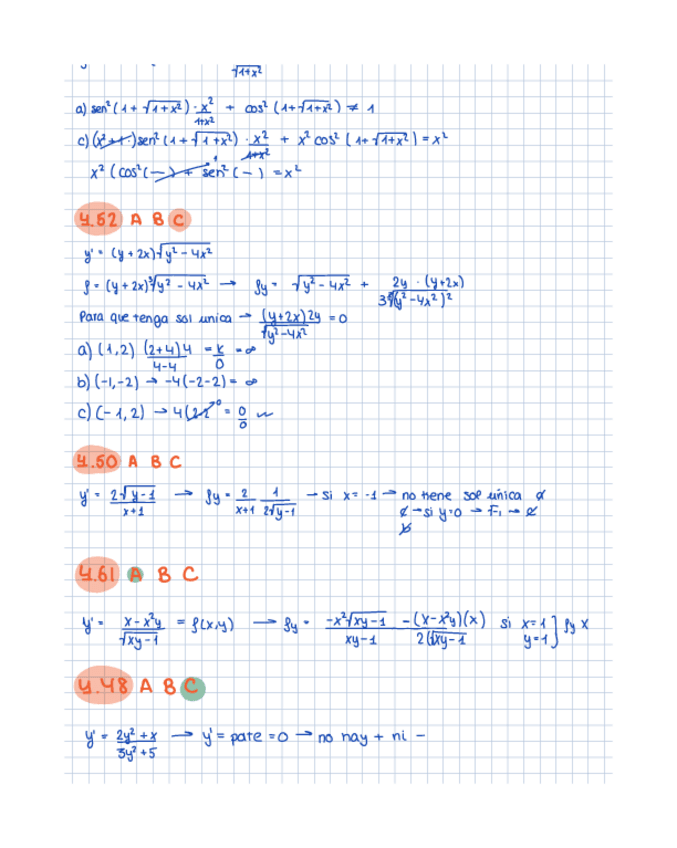 √1+x²
a) sen² (1 + √1+x²) · x²/1+x² + cos² (1+√1+x²) ≠ 1
c) (x²+1) sen² (1+√1+x²) · x²/1+x² + x² cos² (1+√1+x²) = x²
x² (cos² (—) + sen² (—) = x²
4.52 A B C
y' = (y + 2x)√y² - 4x²
f = (y + 2x)∛y² - 4x² → fy = √y² - 4x² + 2y · (y+2x)/3∛(y²-4x²)²
Para que tenga sol unica → (y+2x)2y/√y²-4x² = 0
a) (1,2) (2+4)4/4-4 = k/0 = ∞
b) (-1,-2) → -4(-2-2) = ∞
c) (-1,2) → 4(2-2)⁰ = 0/0
4.50 A B C
y' = 2√y-1/x+1 → fy = 2/x+1 1/2√y-1 → si x = -1 → no tiene sol única a
c → si y=0 → F₁ → c
b
4.61 A B C
y' = x-x²y/√xy-1 = f(x,y) → fy = -x²√xy-1 - (x-x²y)(x)/xy-1 2√xy-1 si x=1 y=1] fy x
4.48 A B C
y' = 2y²+x/3y²+5 → y' = parte = 0 → no hay + ni -